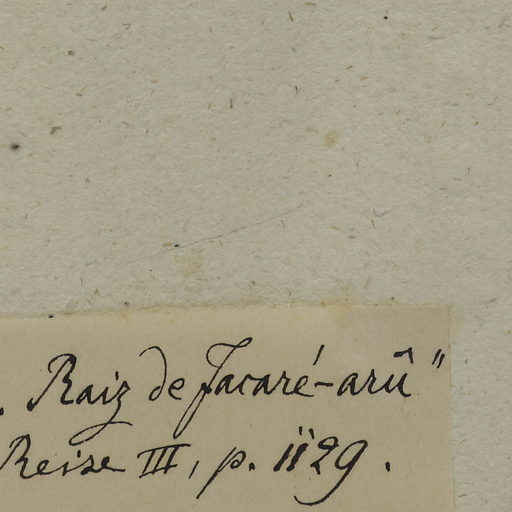 . Raiz de Jacaré-arû"
Reise III, p. 1129.